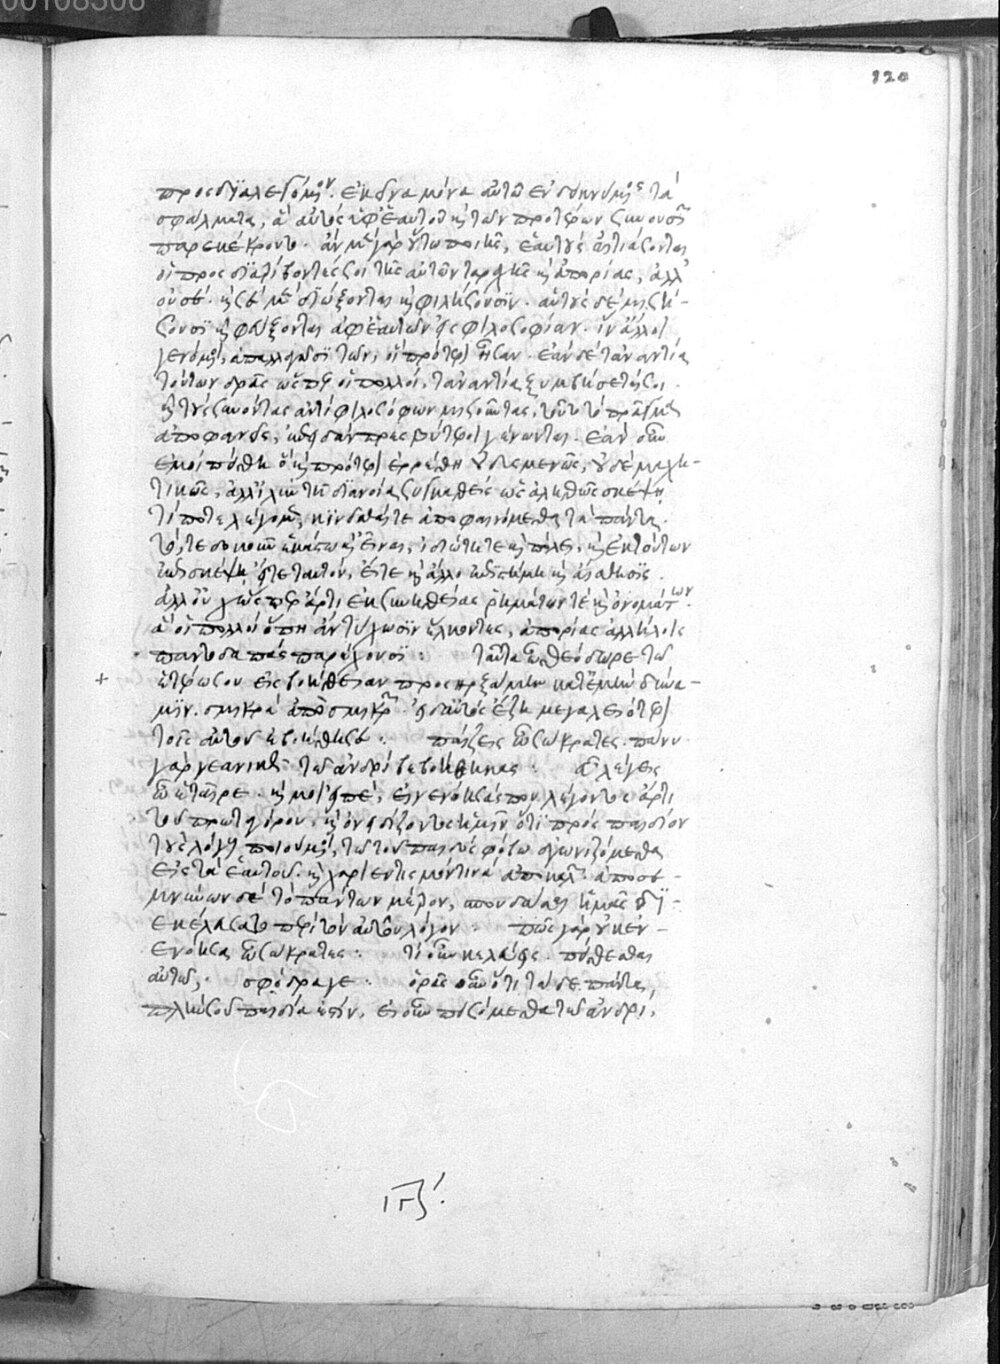 00108306
120
προσδιαλεγόμενον. ἐκεῖνα μόνα αὐτῷ ἐνδεικνύμενος τὰ
σφάλματα, ἃ αὐτὸς ὑφ' ἑαυτοῦ καὶ τῶν προτέρων συνουσιῶν
παρεκέκρουτο. ἂν μὲν γὰρ οὕτω ποιῇς, ἑαυτοὺς αἰτιάσονται
οἱ προσδιατρίβοντές σοι τῆς αὐτῶν ταραχῆς καὶ ἀπορίας, ἀλλ'
οὐ σέ. καὶ σὲ μὲν διώξονται καὶ φιλήσουσιν. αὑτοὺς δὲ μισή-
σουσι καὶ φεύξονται ἀφ' ἑαυτῶν εἰς φιλοσοφίαν. ἵν' ἄλλοι
γενόμενοι, ἀπαλλαγῶσι τῶν, οἳ πρότερον ἦσαν. ἐὰν δὲ τἀναντία
τούτων δρᾷς ὥσπερ οἱ πολλοί, τἀναντία ξυμβήσεταί σοι.
καὶ τοὺς συνόντας ἀντὶ φιλοσόφων μισοῦντας, τοῦτο τὸ πρᾶγμα
ἀποφανεῖς, ἐπειδὰν πρεσβύτεροι γένωνται. ἐὰν οὖν
ἐμοὶ πείθῃ ὃ καὶ πρότερον ἐρρέθη οὐ δυσμενῶς, οὐδὲ μαχη-
τικῶς, ἀλλ' ἵλεῳ τῇ διανοίᾳ συγκαθεὶς ὡς ἀληθῶς σκέψῃ
τί ποτε λέγομεν, κινεῖσθαί τε ἀποφαινόμεθα τὰ πάντα.
τό, τε δοκοῦν ἑκάστῳ καὶ εἶναι, ἰδιώτῃ τε καὶ πόλει, καὶ ἐκ τούτων
ἐπισκέψῃ εἴτε ταυτόν, εἴτε καὶ ἄλλο ἐπιστήμη καὶ αἴσθησις.
ἀλλ' οὐχ ὥσπερ ἄρτι ἐκ συνηθείας ῥημάτων τὲ καὶ ὀνομάτων.
ἃ οἱ πολλοὶ ὅπῃ ἂν τύχωσιν ἕλκοντες, ἀπορίας ἀλλήλοις
παντοδαπὰς παρέχουσι: ταῦτα ὦ θεόδωρε τῷ
+ ἑταίρῳ σου εἰς βοήθειαν προσηρξάμην κατ' ἐμὴν δύνα-
μιν. σμικρὰ ἀπὸ σμικρῶν. εἰ δ' αὐτὸς ἔζη μεγαλειότερον
τοῖς αὑτοῦ ἐβοήθησε: παίζεις ὦ σώκρατες. πάνυ
γὰρ νεανικῶς τῷ ἀνδρὶ βεβοήθηκας: εὖ λέγεις
ὦ ἑταῖρε. καί μοι εἰπέ, ἐνενόησάς που λέγοντος ἄρτι
τοῦ πρωταγόρου, καὶ ὀνειδίζοντος ἡμῖν ὅτι πρὸς παιδίον
τοὺς λόγους ποιούμενοι, τῷ τοῦ παιδὸς φόβῳ ἀγωνιζόμεθα
εἰς τὰ ἑαυτοῦ. καὶ χαριεντισμόν τινα ἀποκαλῶν. ἀποσε-
μνύνων δὲ τὸ πάντων μέτρον, σπουδάσαι ἡμᾶς δι-
εκελεύσατο περὶ τὸν αὐτοῦ λόγον: πῶς γὰρ οὐκ ἐν-
ενόησα ὦ σώκρατες: τί οὖν κελεύεις. πείθεσθαι
αὐτῷ; σφόδρα γε: ὁρᾷς οὖν ὅτι τάδε πάντα,
πλὴν σοῦ παιδία ἐστίν, εἰ οὖν πεισόμεθα τῷ ἀνδρί,